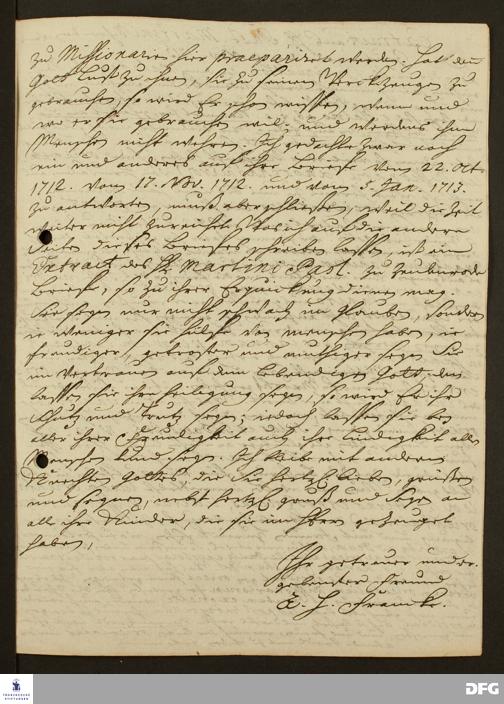 zu Missionarien hier praepariret werden. Hat denn
Gott Lust zu ihnen, sie zu seinen Werckzeugen zu
gebrauchen, so wird Er schon wissen, wann und
wo er sie gebrauchen wil, und werdens ihm
Menschen nicht wehren. Ich gedachte zwar noch
ein und anderes auf ihre Briefe vom 22. Oct.
1712. vom 17. Nov. 1712. und vom 5. Jan. 1713.
zu antworten, muß aber schließen, weil die Zeit
weiter nicht zureichet. Was ich auf die andere
Seite dieses Briefes schreiben lassen, ist ein
Extract des H. Martini Past. zu
Briefe, so zu ihrer Erquickung dienen mag.
Sie seyen nur nicht schwach im Glauben, sondern
ie weniger sie hülffe von menschen haben, ie
freudiger, getroster und muthiger seyen Sie
im Vertrauen auf den lebendigen Gott. den
lassen sie ihre heiligung seyn, so wird Er ihr
Schutz und Trutz seyn; iedoch lassen sie bey
aller ihrer Freudigkeit auch ihre Lindigkeit allen
Menschen kund seyn. Ich bin mit anderen
Knechten Gottes, die Sie hertzl. lieben, grüßen
und segnen, nebst hertzl. gruß und Segen an
alle ihre Kinder, die sie im Herrn gezeuget
haben,
Ihr getreuer und er-
gebenster Freund
A. H. Francke.
FRANCKESCHE
STIFTUNGEN
DFG